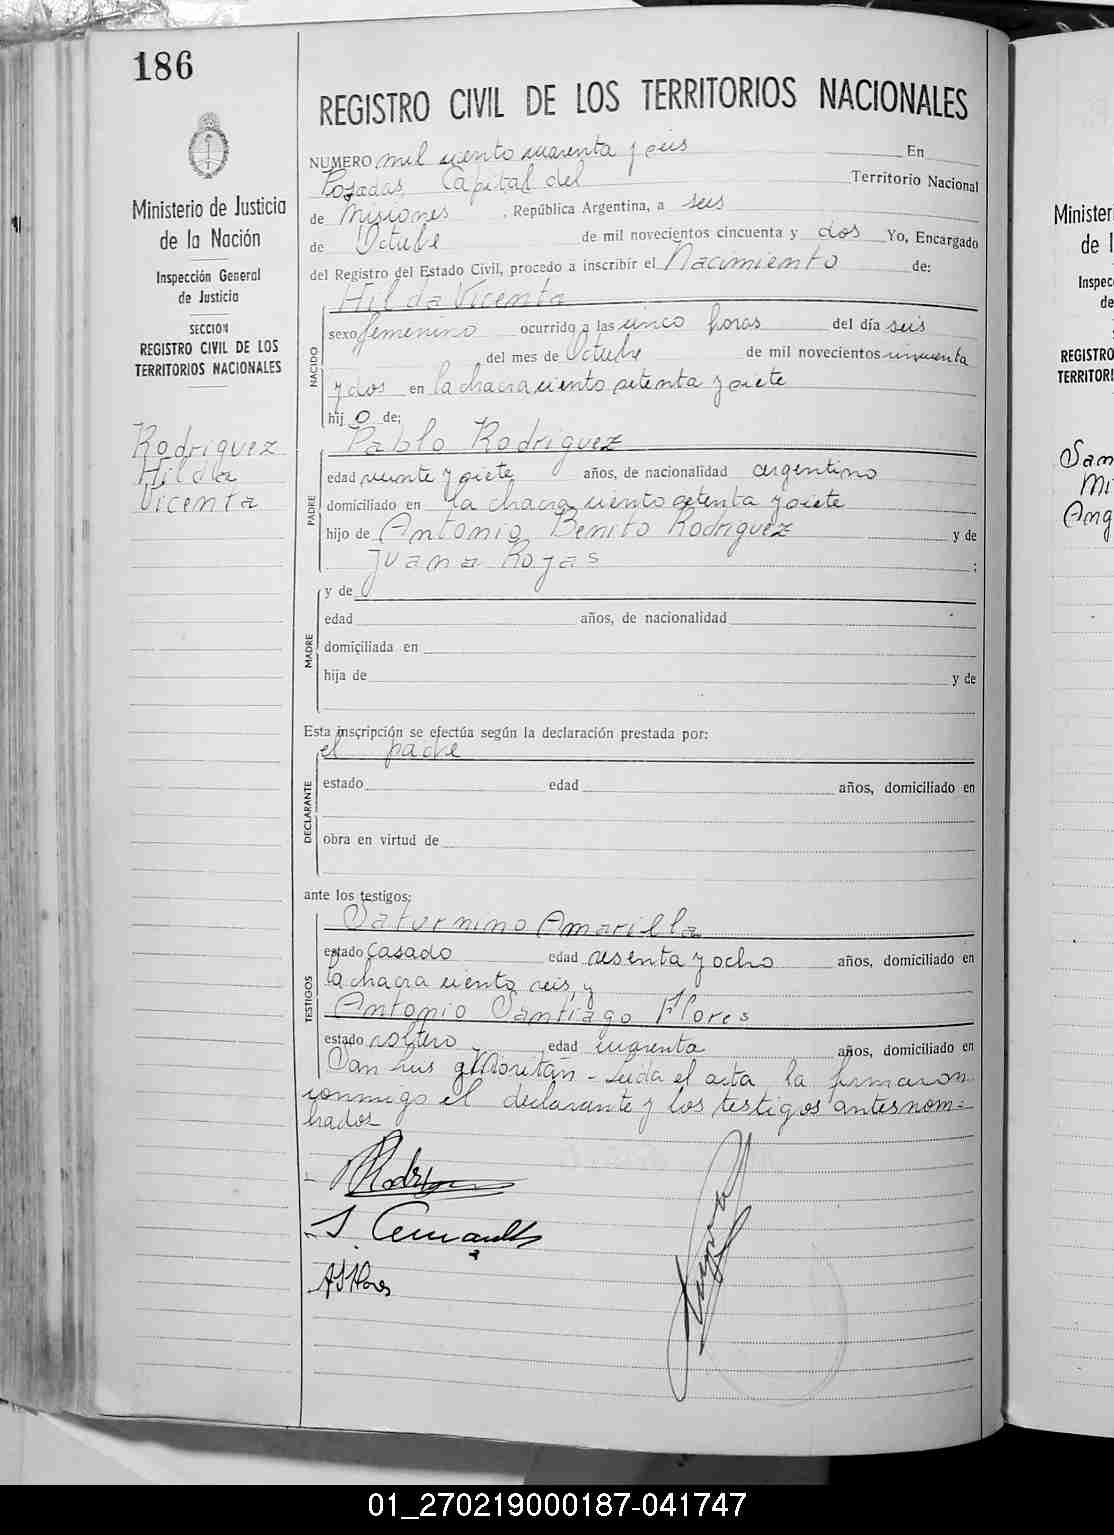 186
REGISTRO CIVIL DE LOS TERRITORIOS NACIONALES
Ministerio de Justicia
de la Nación
Inspección General
de Justicia
SECCION
REGISTRO CIVIL DE LOS
TERRITORIOS NACIONALES
Rodriguez
Hilda
Vicenta
NUMERO mil ciento cuarenta y seis En
Posadas, Capital del Territorio Nacional
de Misiones, República Argentina, a seis
de Octubre de mil novecientos cincuenta y dos Yo, Encargado
del Registro del Estado Civil, procedo a inscribir el Nacimiento de:
Hilda Vicenta
NACIDO
sexo femenino ocurrido a las cinco horas del día seis
del mes de Octubre de mil novecientos cincuenta
y dos en la chacra ciento setenta y siete
hij o de;
Pablo Rodriguez
PADRE
edad veinte y siete años, de nacionalidad argentino
domiciliado en la chacra ciento setenta y siete
hijo de Antonio Benito Rodriguez y de
Juana Rojas ;
MADRE
y de
edad años, de nacionalidad
domiciliada en
hija de y de
Esta inscripción se efectúa según la declaración prestada por:
el padre
DECLARANTE
estado edad años, domiciliado en
obra en virtud de
ante los testigos:
Saturnino Amarilla
TESTIGOS
estado casado edad sesenta y ocho años, domiciliado en
la chacra ciento seis, y
Antonio Santiago Flores
estado soltero edad cuarenta años, domiciliado en
San Luis y Moritán - Leida el acta, la firmaron
conmigo el declarante y los testigos antes nom=
brados
A S Flores
Minister
de l
Inspec
de
REGISTRO
TERRITORI
San
Mi
Ang
01_270219000187-041747